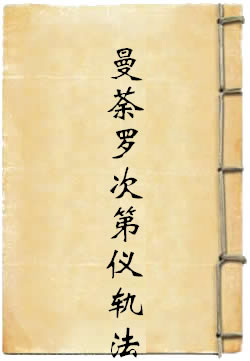 曼荼罗次第仪轨法